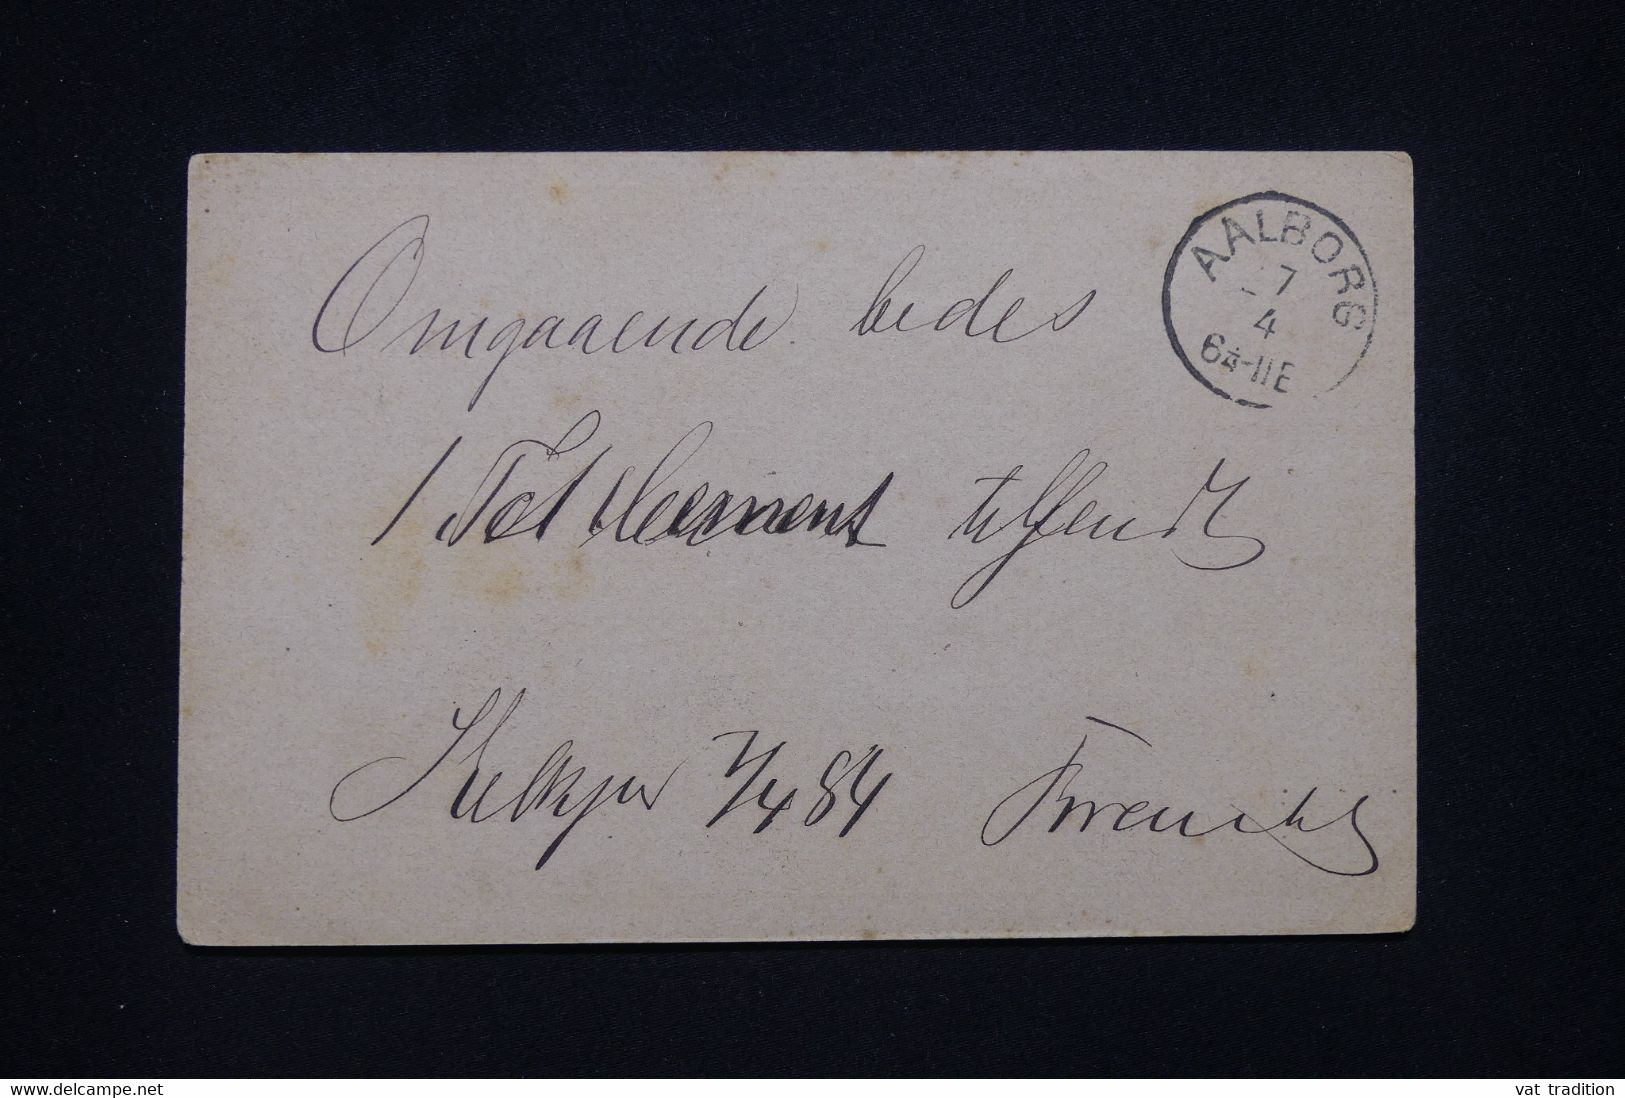 AALBORG
7
4
6¾-11E
Omgaaende bedes
1 Tdr Cement tilsendt
7/4 84
www.delcampe.net
vat_tradition